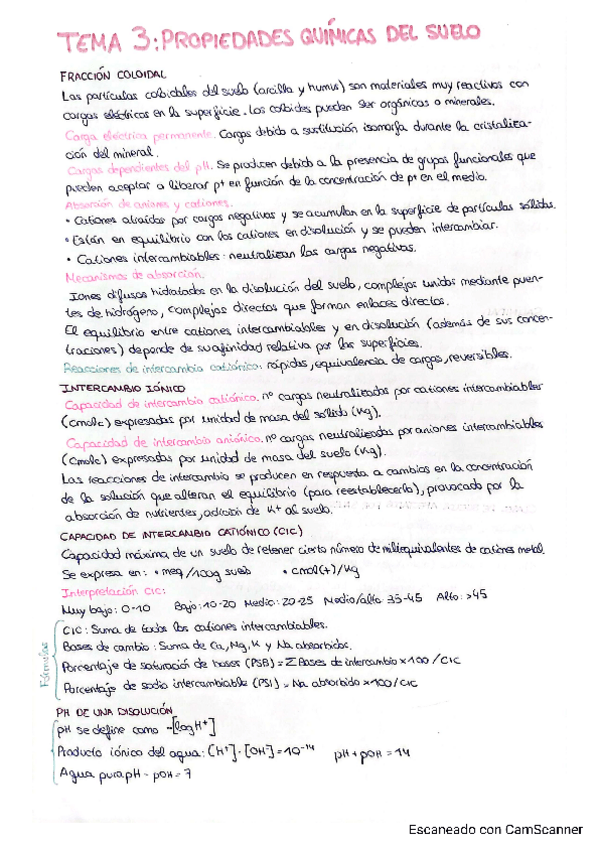 TEMA 3: PROPIEDADES QUÍMICAS DEL SUELO
FRACCIÓN COLOIDAL
Las partículas coloidales del suelo (arcilla y humus) son materiales muy reactivos con
cargas eléctricas en la superficie. Los coloides pueden ser orgánicos o minerales.
Carga eléctrica permanente. Cargas debido a sustitución isomorfa durante la cristaliza-
ción del mineral.
Cargas dependientes del pH. Se producen debido a la presencia de grupos funcionales que
pueden aceptar o liberar p+ en función de la concentración de p+ en el medio.
Absorción de aniones y cationes.
• Cationes atraídos por cargas negativas y se acumulan en la superficie de partículas sólidas.
• Están en equilibrio con los cationes en disolución y se pueden intercambiar.
• Cationes intercambiables: neutralizan las cargas negativas.
Mecanismos de absorción.
Iones difusos hidratados en la disolución del suelo, complejos unidos mediante puen-
tes de hidrógeno, complejos directos que forman enlaces directos.
El equilibrio entre cationes intercambiables y en disolución (además de sus concen-
traciones) depende de su afinidad relativa por las superficies.
Reacciones de intercambio catiónico: rápidas, equivalencia de cargas, reversibles.
INTERCAMBIO IÓNICO
Capacidad de intercambio catiónico. nº cargas neutralizadas por cationes intercambiables
(cmolc) expresadas por unidad de masa del sólido (Kg).
Capacidad de intercambio aniónico. nº cargas neutralizadas por aniones intercambiables
(cmolc) expresadas por unidad de masa del suelo (Kg).
Las reacciones de intercambio se producen en respuesta a cambios en la concentración
de la solución que alteran el equilibrio (para reestablecerlo), provocado por la
absorción de nutrientes, adición de K+ al suelo.
CAPACIDAD DE INTERCAMBIO CATIÓNICO (CIC)
Capacidad máxima de un suelo de retener cierto número de miliequivalentes de cationes metal.
Se expresa en: • meq/100g suelo • cmol(+)/Kg
Interpretación CIC:
Muy bajo: 0-10 Bajo: 10-20 Medio: 20-25 Medio/alto: 35-45 Alto: >45
Fórmulas
CIC: Suma de todos los cationes intercambiables.
Bases de cambio: Suma de Ca, Mg, K y Na absorbidos.
Porcentaje de saturación de bases (PSB) = Σ Bases de intercambio × 100 / CIC
Porcentaje de sodio intercambiable (PSI) = Na absorbido × 100 / CIC
PH DE UNA DISOLUCIÓN
pH se define como -[log H+]
Producto iónico del agua: [H+] · [OH-] = 10-14 pH + pOH = 14
Agua pura pH = pOH = 7
Escaneado con CamScanner